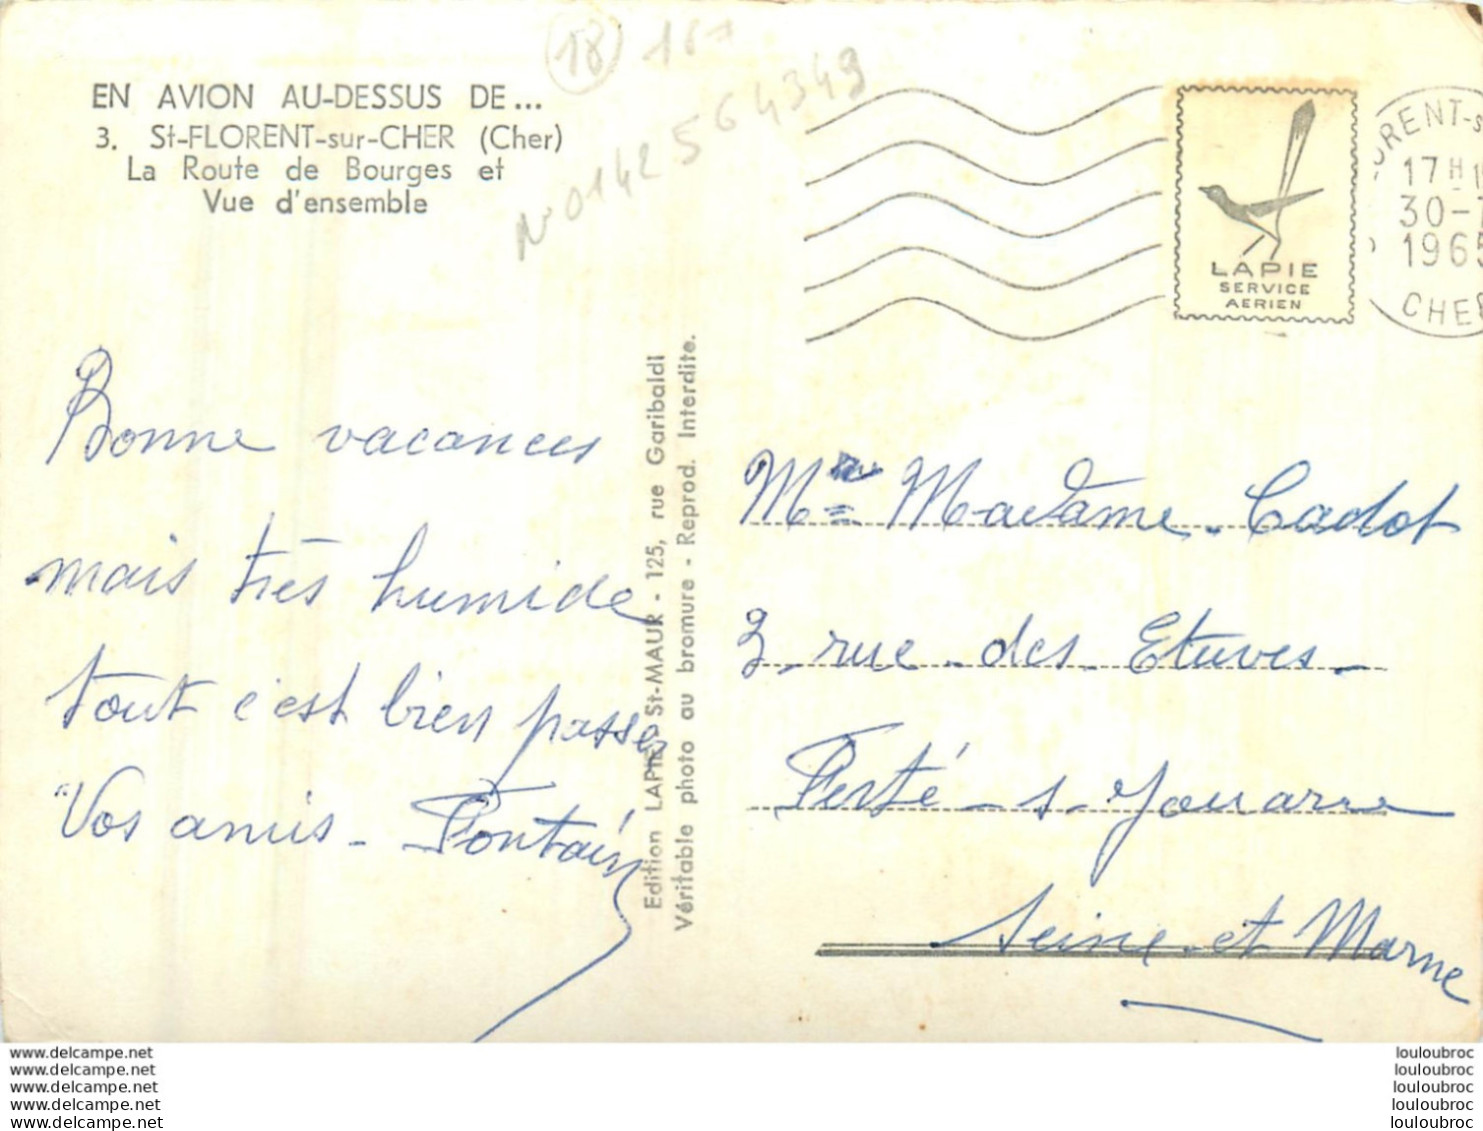 (18) 161
N° 0142564349
EN AVION AU-DESSUS DE...
3. St-FLORENT-sur-CHER (Cher)
La Route de Bourges et
Vue d'ensemble
LAPIE
SERVICE
AERIEN
ORENT-s
17 H 1
30-7
1965
CHE
Bonne vacances
mais très humide
tout c'est bien passer
Vos amis - Fontain
Edition LAPIE, St-MAUR - 125, rue Garibaldi
Véritable photo au bromure - Reprod. Interdite.
Mr Madame Cadot
3 rue des Etuves
Ferté - s - Jouarre
Seine et Marne
www.delcampe.net
www.delcampe.net
www.delcampe.net
www.delcampe.net
www.delcampe.net
louloubroc
louloubroc
louloubroc
louloubroc
louloubroc